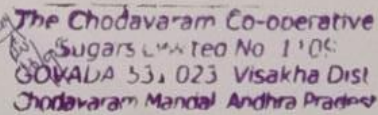 The Chodavaram Co-operative
Sugars Limited No 1109
GOVADA 531 023 Visakha Dist
Chodavaram Mandal Andhra Pradesh